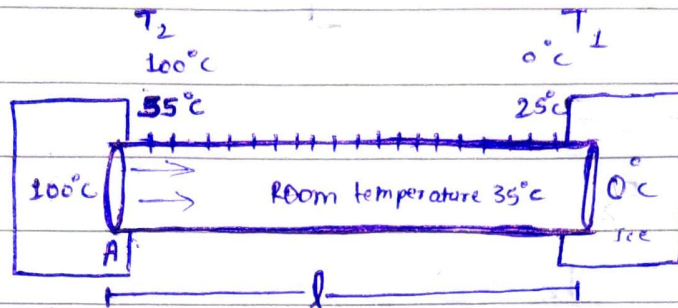 T2 T1
100°C 0°C
55°C 25°C
100°C Room temperature 35°C 0°C
Ice
A
l